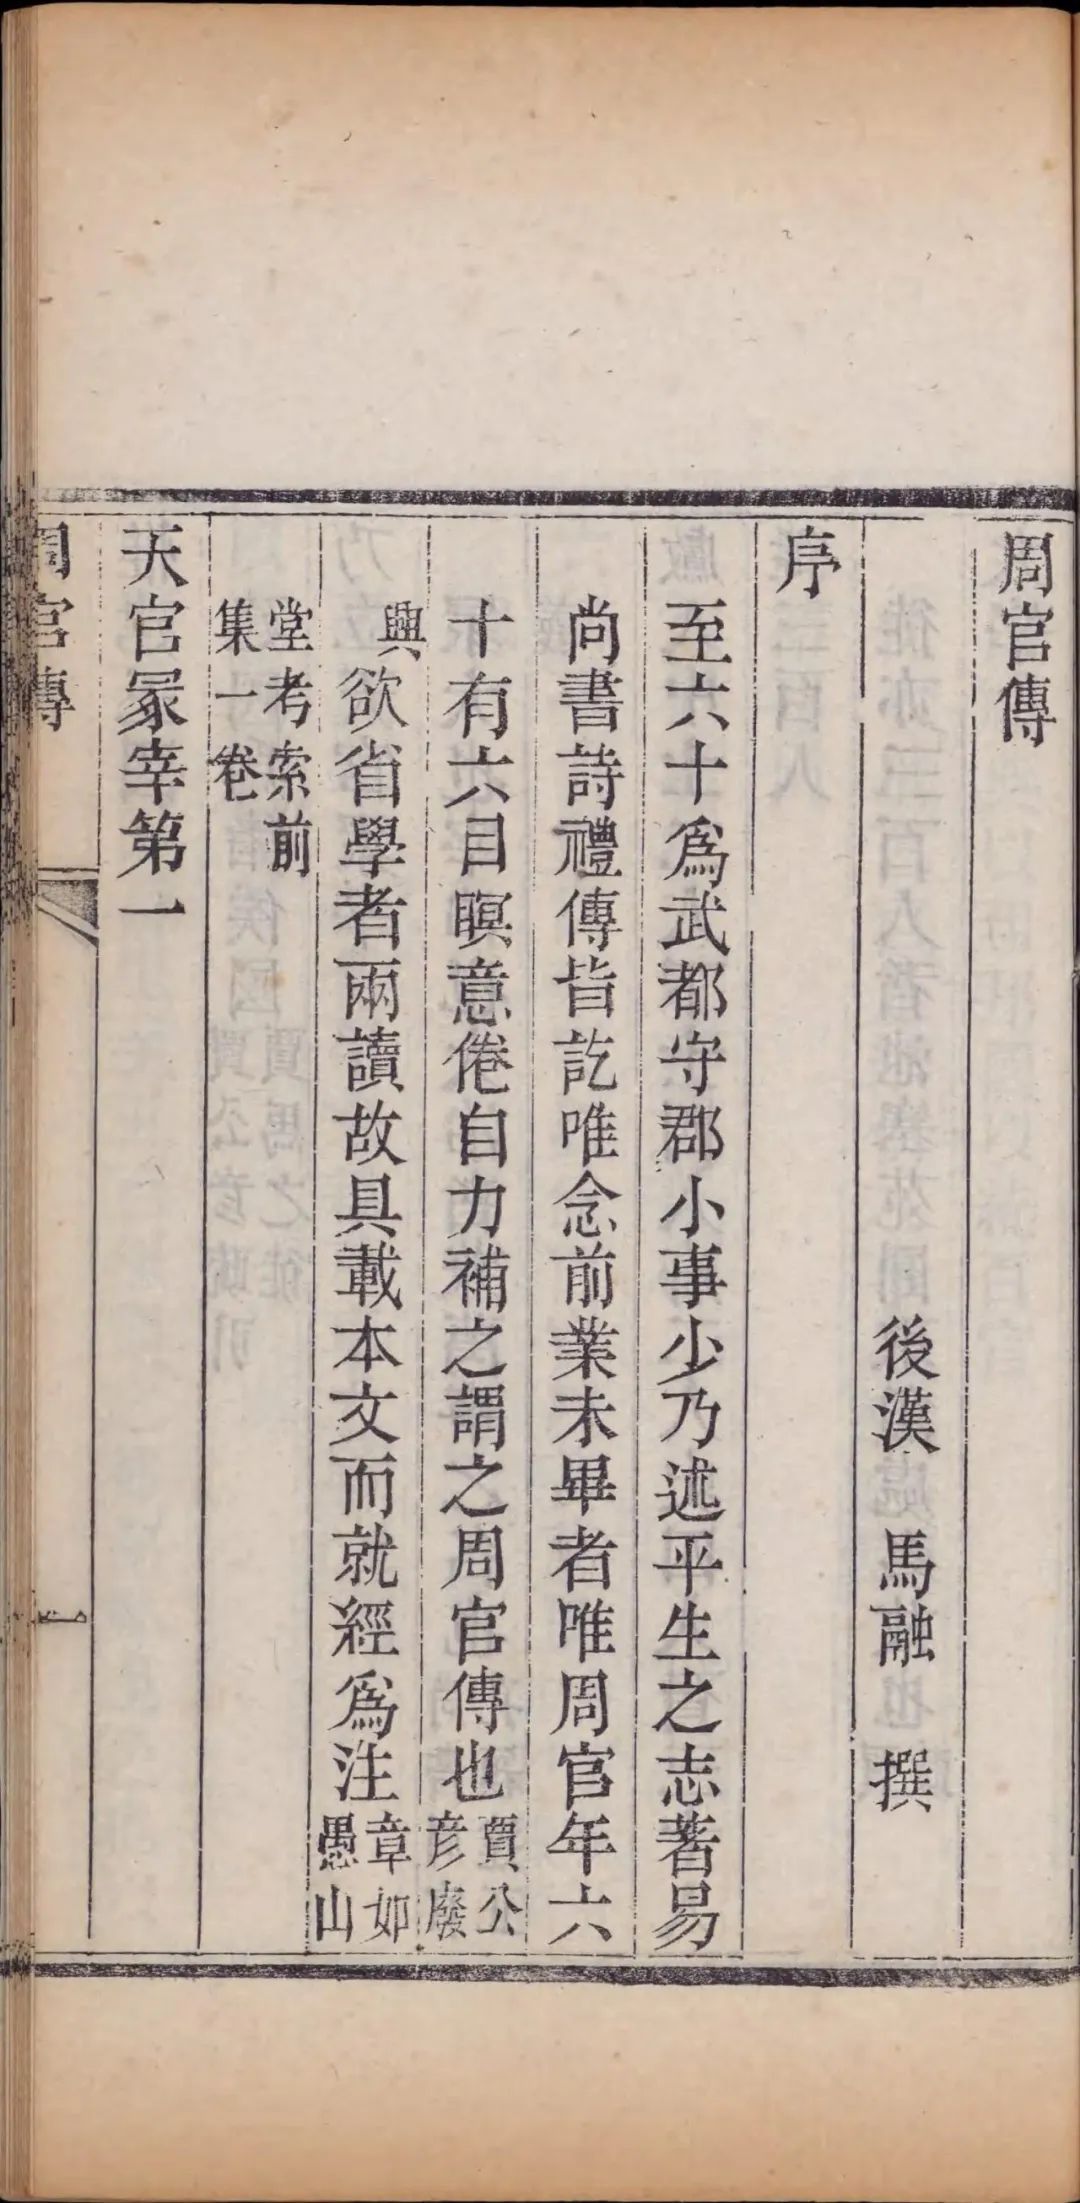 周官傳
後漢 馬融 撰
序
至六十爲武都守郡小事少乃述平生之志著易
尚書詩禮傳皆訖唯念前業未畢者唯周官年六
十有六目瞑意倦自力補之謂之周官傳也賈公彦廢
興欲省學者兩讀故具載本文而就經爲注章如愚山
堂考索前集一卷
天官冢宰第一
周官傳
一